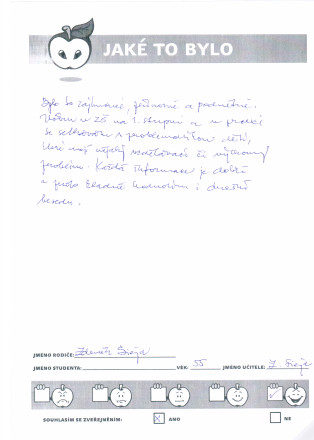 JAKÉ TO BYLO
Bylo to zajímavé, jednotné a podnětné.
Učím v ZŠ na 1. stupni a v praxi
se setkávám s problematikou dětí,
které mají nějaký vzdělávací či výchovný
problém. Každá informace je dobrá
a jsou hodně i dnešní
beseda.
JMÉNO RODIČE: Zdeněk
JMÉNO STUDENTA: VĚK: 55 JMÉNO UČITELE: Z.
SOUHLASÍM SE ZVEŘEJNĚNÍM: X ANO NE